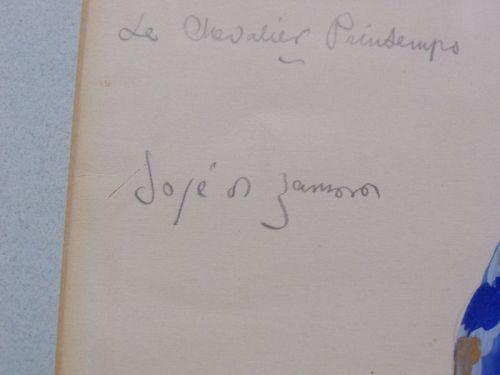 Le Chevalier Printemps
José de Zamora